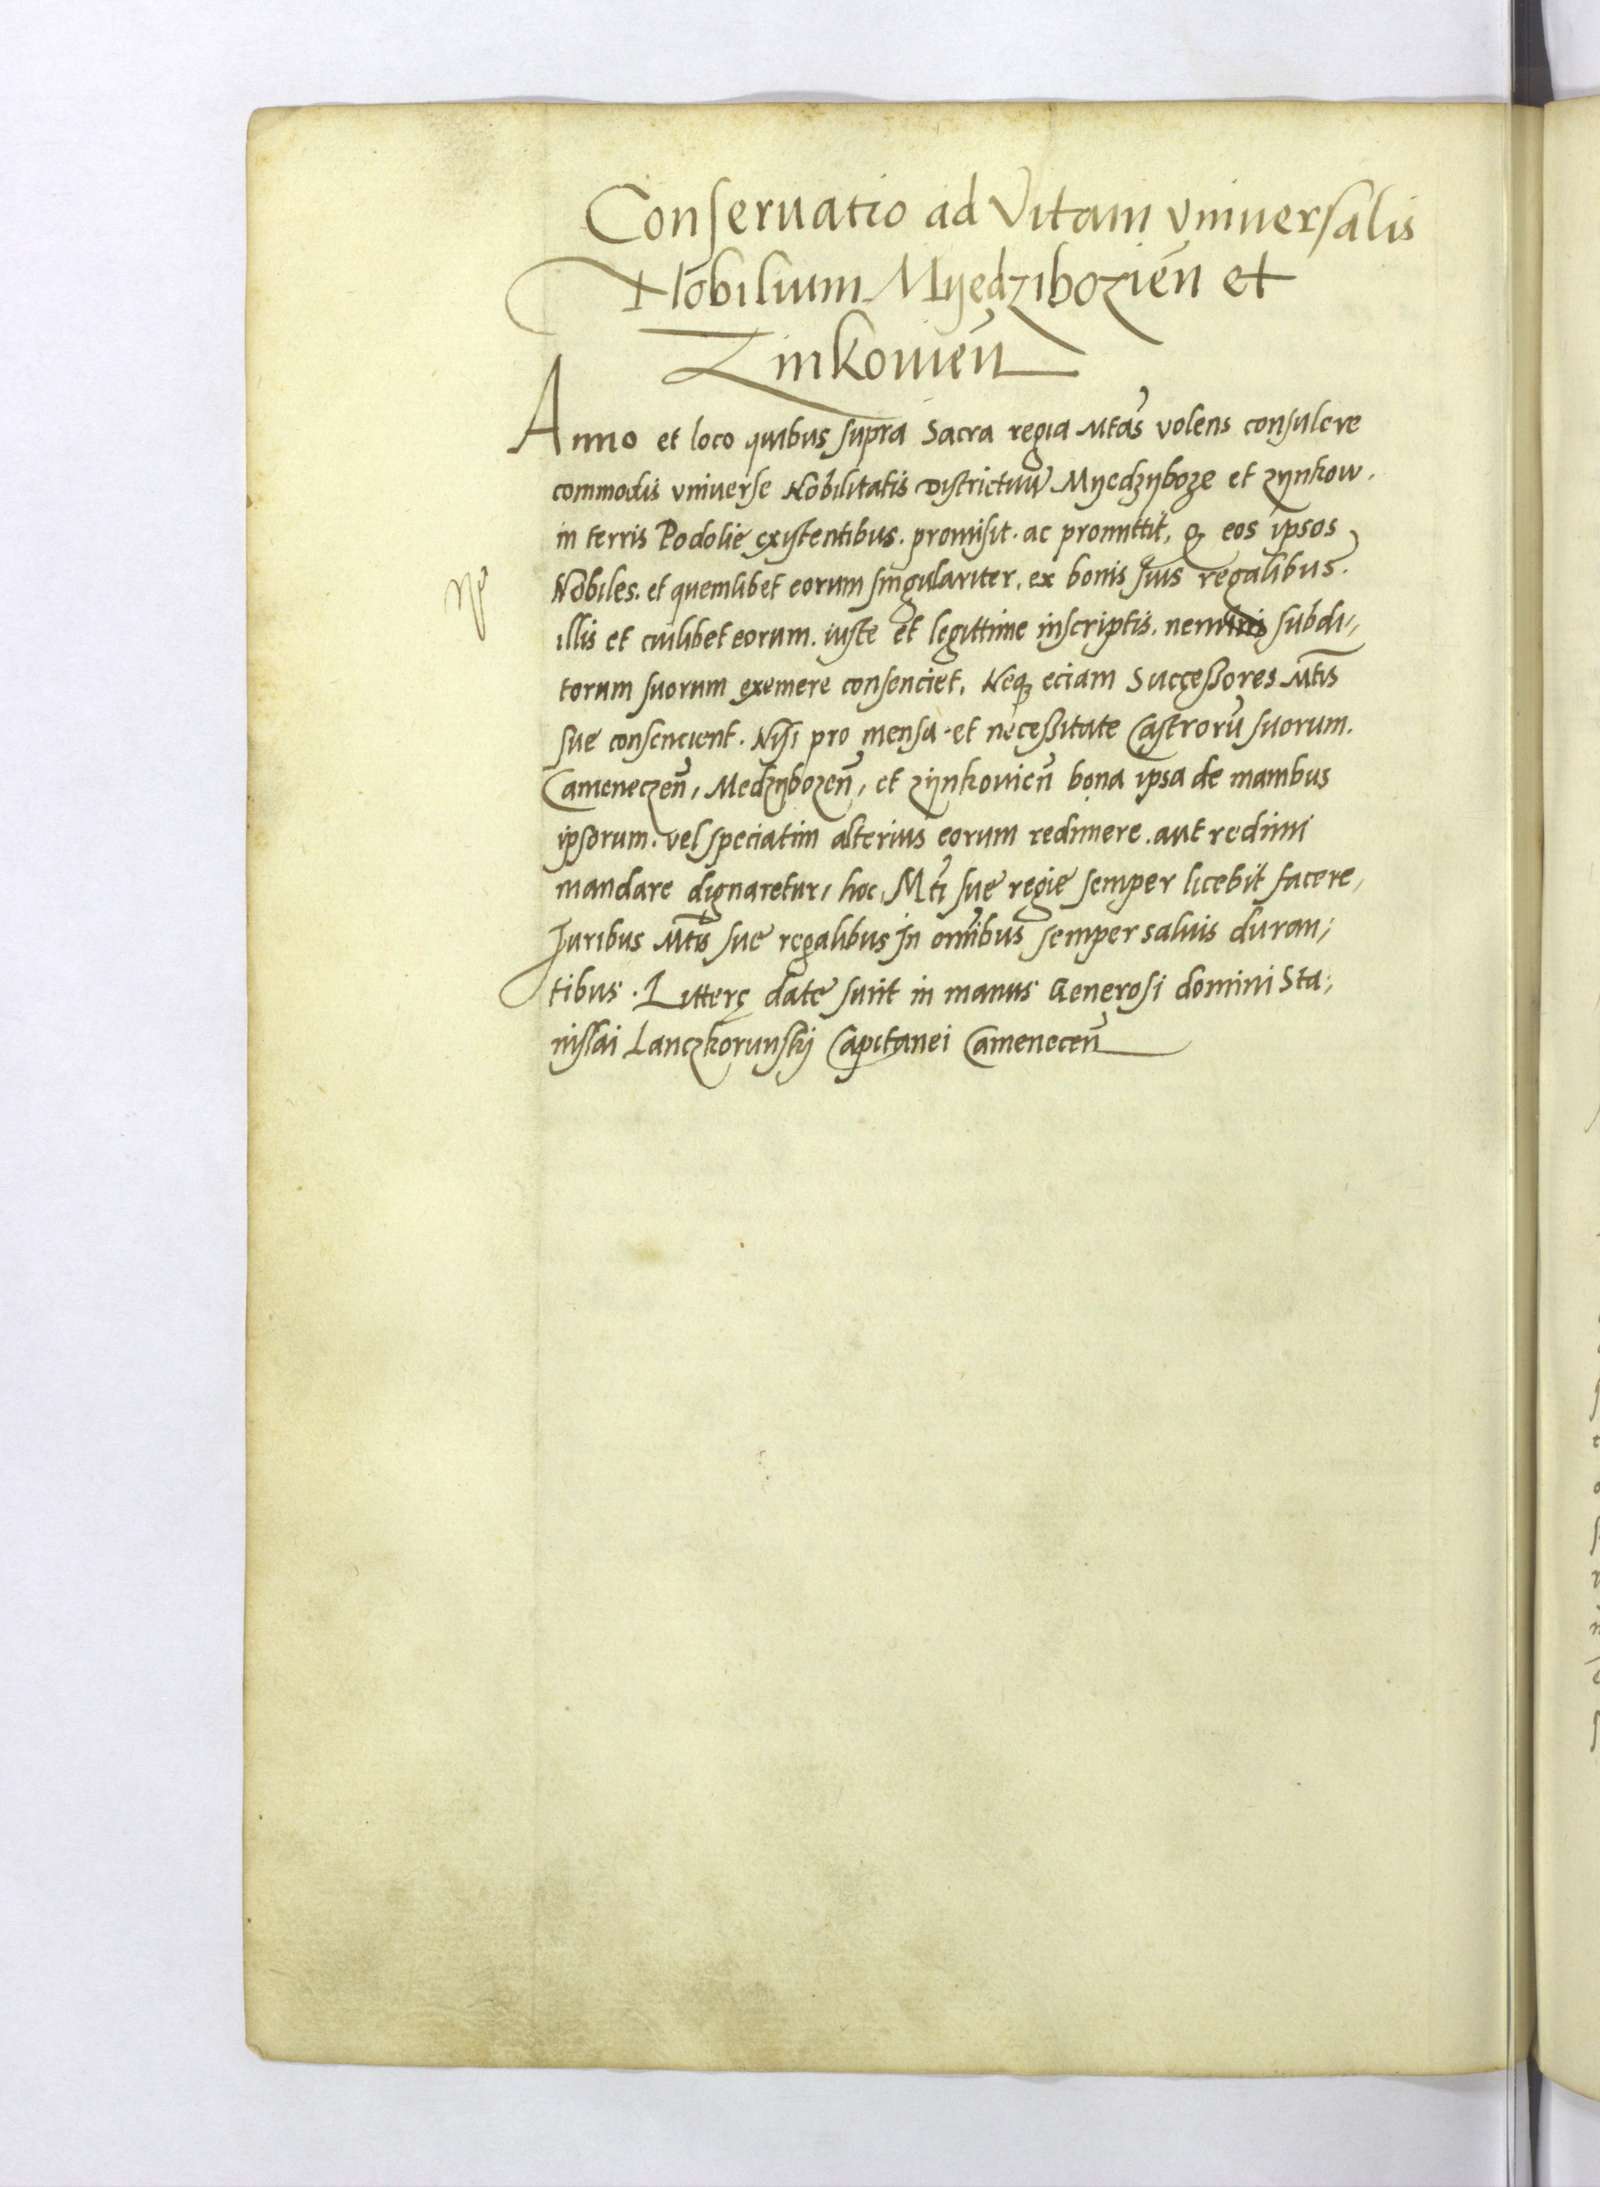 Conseruatio ad Vitam vniuersalis
Nobilium Myedzibozien̄ et
Zinkouien̄
Anno et loco quibus supra Sacra regia Mtas volens consulere
commodis vniuerse Nobilitatis Districtuum Myedzyboze et zynkow.
in terris Podolie existentibus. promisit. ac promittit, q eos ipsos
Nobiles. et quemlibet eorum singulariter, ex bonis suis regalibus.
illis et cuilibet eorum. iuste et legittime inscriptis. nemini subdi,,
torum suorum exemere consenciet, Neq eciam Successores Mtis
sue consencient. Nisi pro mensa et necessitate Castrorū suorum.
Cameneczen̄, Medzybozen̄, et zynkouien̄ bona ipsa de manibus
ipsorum. vel speciatim alterius eorum redimere. aut redimi
mandare dignaretur, hoc, Mti sue regie semper licebit facere,
Juribus Mtis sue regalibus in omībus semper saluis duran,
tibus. Litterę date sunt in manus Generosi domini Sta,
nislai Lanczkorunskij Capitanei Camenecen̄